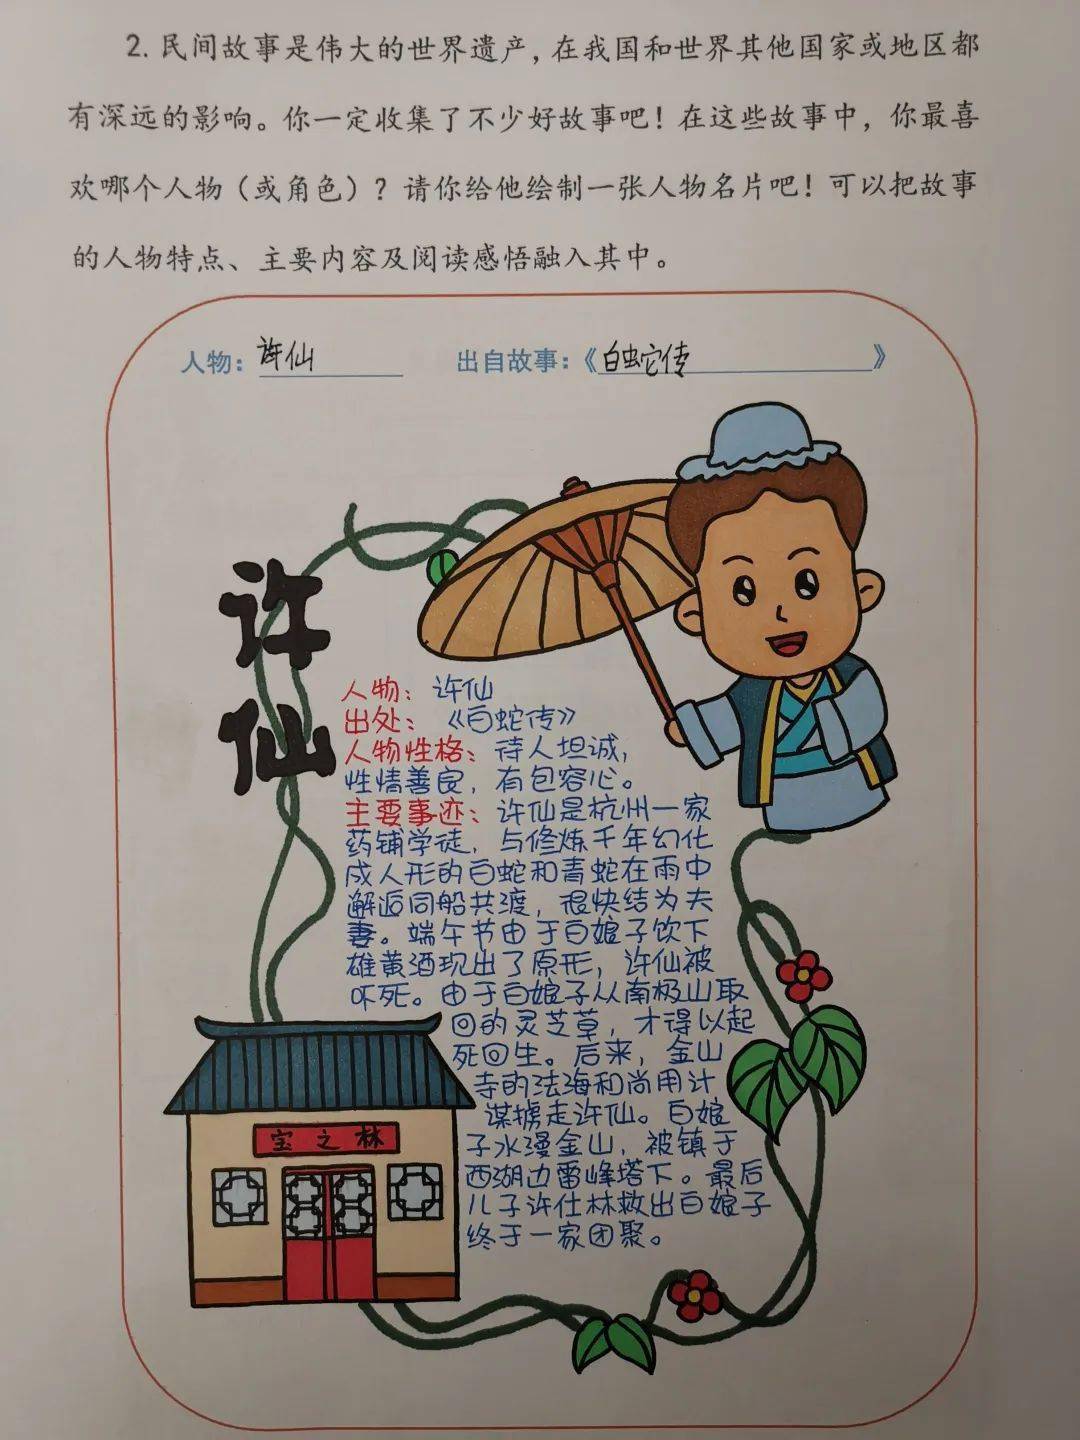 2. 民间故事是伟大的世界遗产，在我国和世界其他国家或地区都
有深远的影响。你一定收集了不少好故事吧！在这些故事中，你最喜
欢哪个人物（或角色）？请你给他绘制一张人物名片吧！可以把故事
的人物特点、主要内容及阅读感悟融入其中。
人物：许仙 出自故事：《白蛇传》
许
仙
人物：许仙
出处：《白蛇传》
人物性格：待人坦诚，
性情善良，有包容心。
主要事迹：许仙是杭州一家
药铺学徒，与修炼千年幻化
成人形的白蛇和青蛇在雨中
邂逅同船共渡，很快结为夫
妻。端午节由于白娘子饮下
雄黄酒现出了原形，许仙被
吓死。由于白娘子从南极山取
回的灵芝草，才得以起
死回生。后来，金山
寺的法海和尚用计
谋掳走许仙。白娘
子水漫金山，被镇于
西湖边雷峰塔下。最后
儿子许仕林救出白娘子
终于一家团聚。
宝之林